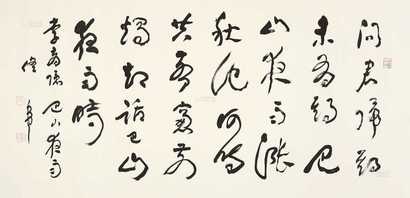 问君归期
未有期巴
山夜雨涨
秋池何
共窗
烛却话巴山
夜雨时
李商隐巴山夜雨